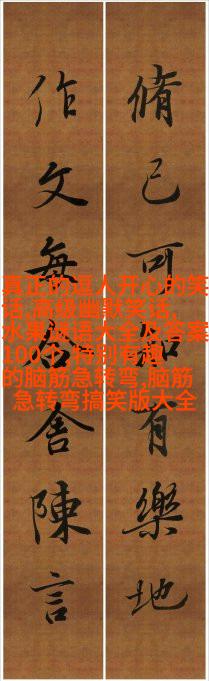 脩己可知有樂地
作文無舍陳言
真正的逗人开心的笑
话,高级幽默笑话,
水果谜语大全及答案
100个,特别有趣
的脑筋急转弯,脑筋
急转弯搞笑版大全